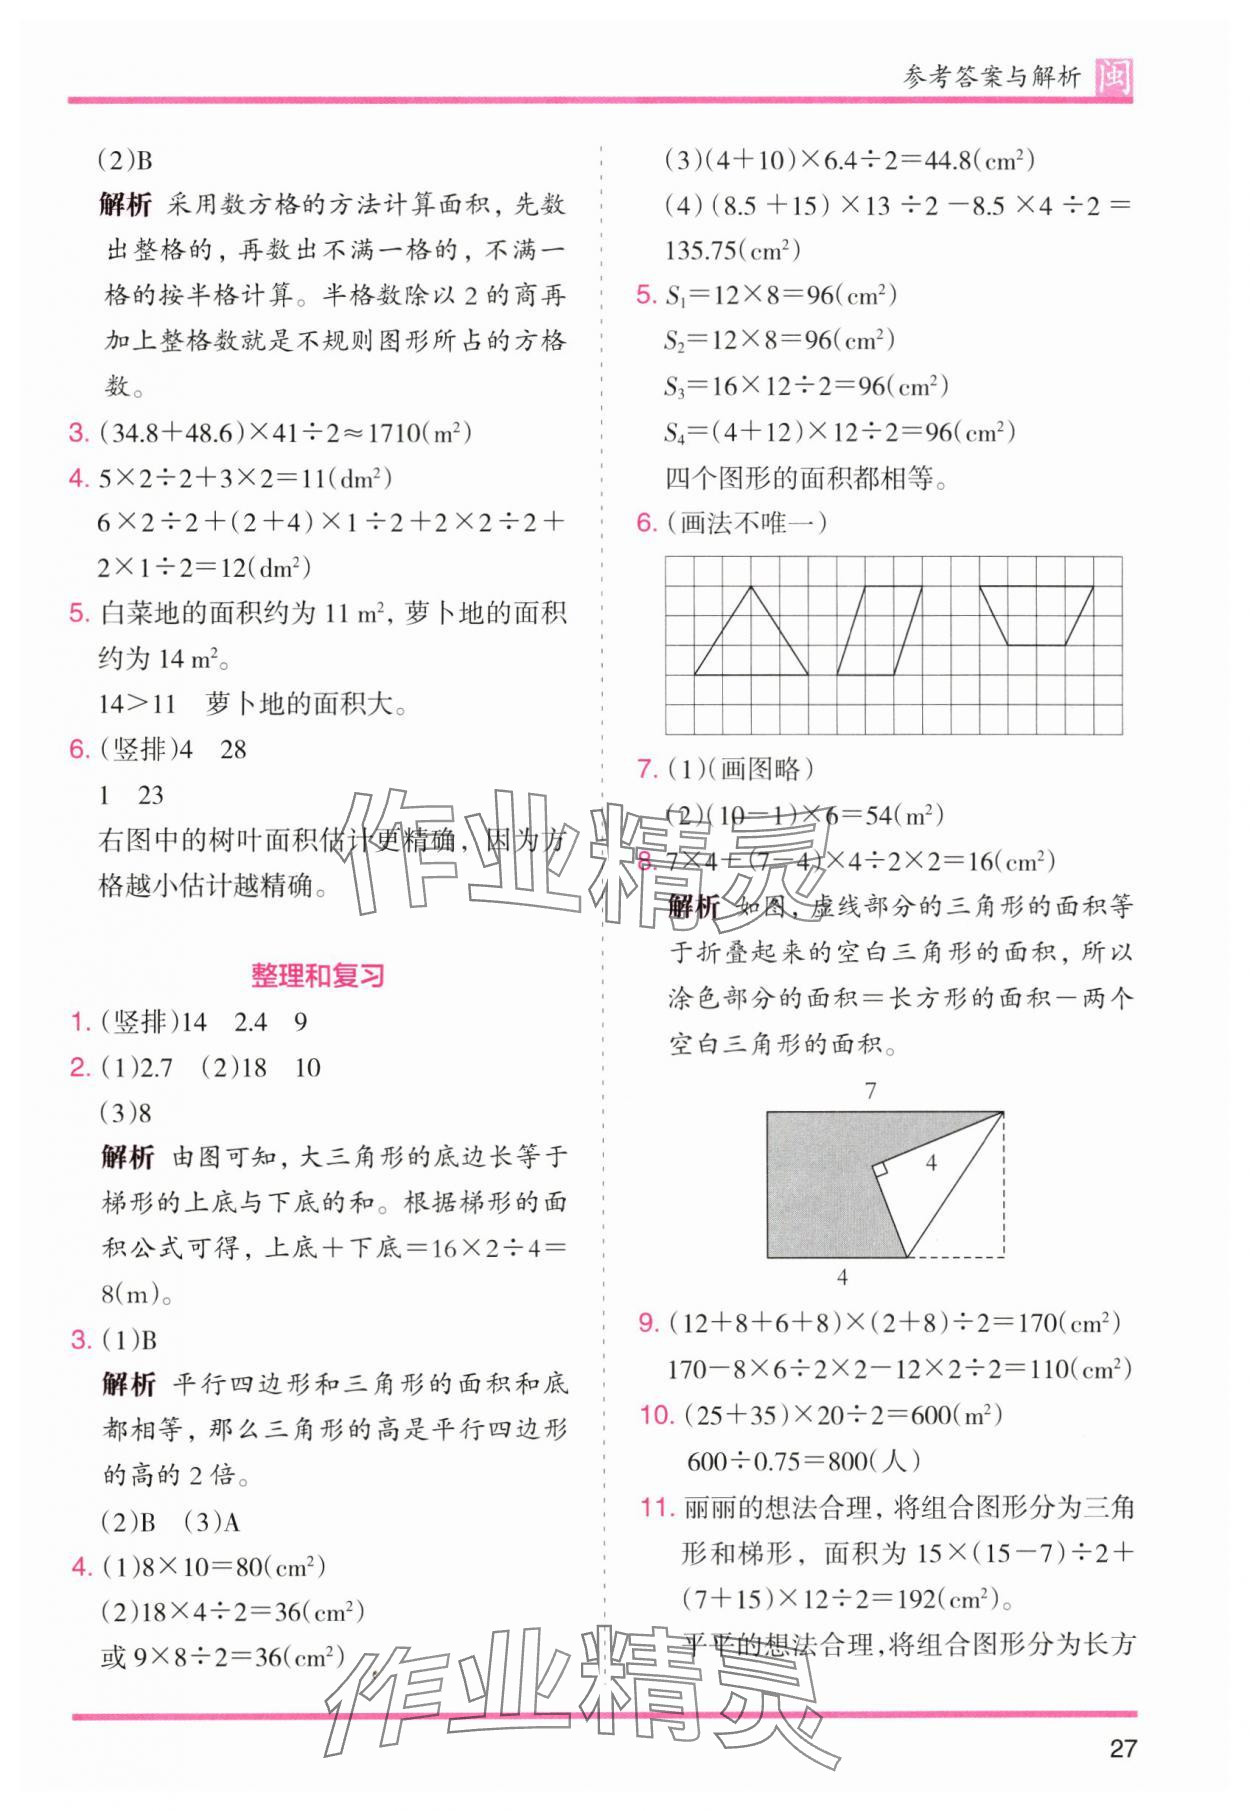 参考答案与解析 闽
(2)B
解析 采用数方格的方法计算面积，先数
出整格的，再数出不满一格的，不满一
格的按半格计算。半格数除以2的商再
加上整格数就是不规则图形所占的方格
数。
3. (34.8＋48.6)×41÷2≈1710(m²)
4. 5×2÷2＋3×2＝11(dm²)
6×2÷2＋(2＋4)×1÷2＋2×2÷2＋
2×1÷2＝12(dm²)
5. 白菜地的面积约为11 m²，萝卜地的面积
约为14 m²。
14＞11 萝卜地的面积大。
6. (竖排)4 28
1 23
右图中的树叶面积估计更精确，因为方
格越小估计越精确。
整理和复习
1. (竖排)14 2.4 9
2. (1)2.7 (2)18 10
(3)8
解析 由图可知，大三角形的底边长等于
梯形的上底与下底的和。根据梯形的面
积公式可得，上底＋下底＝16×2÷4＝
8(m)。
3. (1)B
解析 平行四边形和三角形的面积和底
都相等，那么三角形的高是平行四边形
的高的2倍。
(2)B (3)A
4. (1)8×10＝80(cm²)
(2)18×4÷2＝36(cm²)
或9×8÷2＝36(cm²)
(3)(4＋10)×6.4÷2＝44.8(cm²)
(4)(8.5＋15)×13÷2－8.5×4÷2＝
135.75(cm²)
5. S₁＝12×8＝96(cm²)
S₂＝12×8＝96(cm²)
S₃＝16×12÷2＝96(cm²)
S₄＝(4＋12)×12÷2＝96(cm²)
四个图形的面积都相等。
6. (画法不唯一)
7. (1)(画图略)
(2)(10－1)×6＝54(m²)
8. 7×4－(7－4)×4÷2×2＝16(cm²)
解析 如图，虚线部分的三角形的面积等
于折叠起来的空白三角形的面积，所以
涂色部分的面积＝长方形的面积－两个
空白三角形的面积。
7
4
4
9. (12＋8＋6＋8)×(2＋8)÷2＝170(cm²)
170－8×6÷2×2－12×2÷2＝110(cm²)
10. (25＋35)×20÷2＝600(m²)
600÷0.75＝800(人)
11. 丽丽的想法合理，将组合图形分为三角
形和梯形，面积为15×(15－7)÷2＋
(7＋15)×12÷2＝192(cm²)。
平平的想法合理，将组合图形分为长方
作业精灵
作业精灵
27